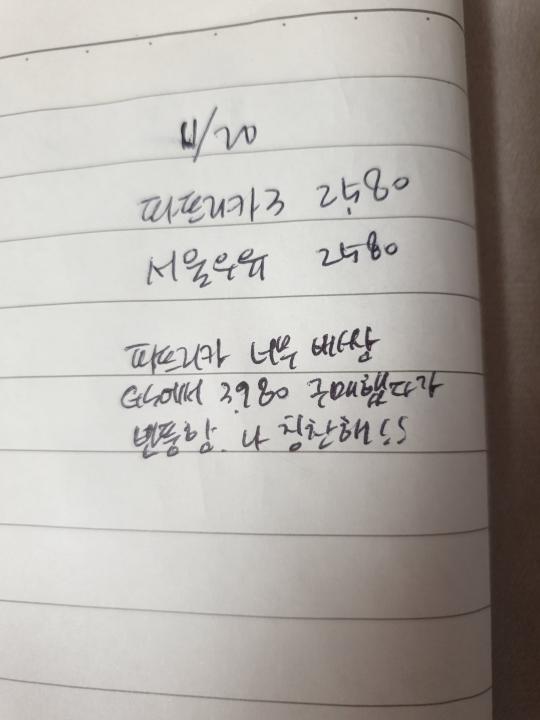 11/20
파프리카3 2,580
서울우유 2580
파프리카 너무 비쌈
GS에서 3,980 구매했다가
반품함. 나 칭찬해 ㅎㅎ